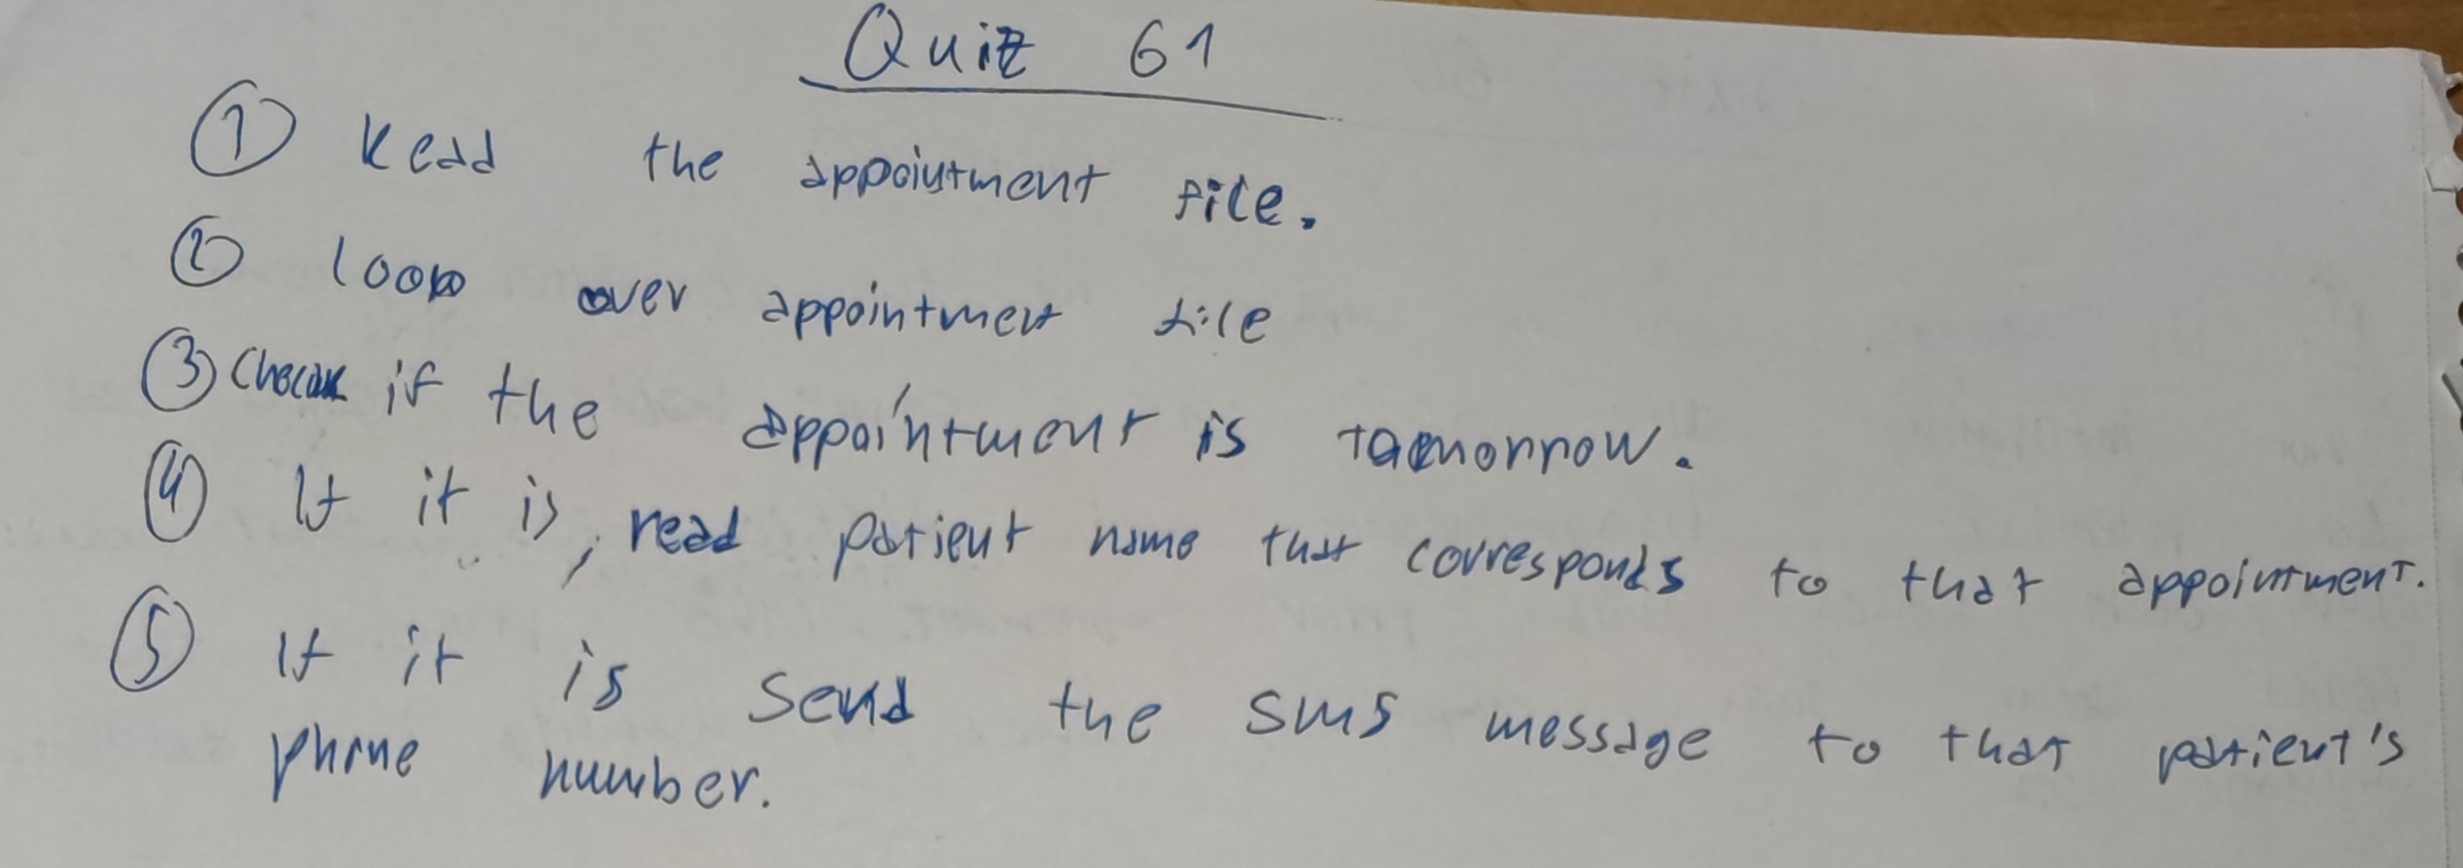 Quiz 61
① Read the appointment file.
② loop over appointment file
③ Check if the appointment is tomorrow.
④ If it is, read patient name that corresponds to that appointment.
⑤ If it is send the sms message to that patient's
phone number.